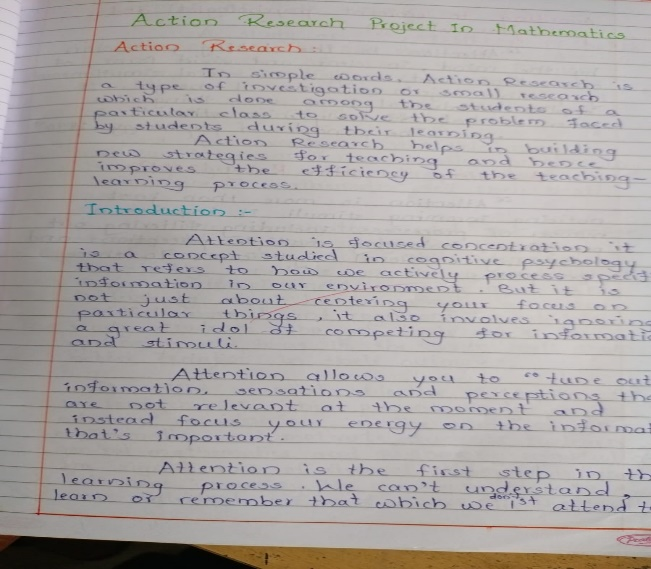 Action Research Project In Mathematics
Action Research :
In simple words, Action Research is
a type of investigation or small research
which is done among the students of a
particular class to solve the problem faced
by students during their learning.
Action Research helps in building
new strategies for teaching and hence
improves the efficiency of the teaching-
learning process.
Introduction :-
Attention is focused concentration it
is a concept studied in cognitive psychology
that refers to how we actively process specif
information in our environment. But it is
not just about centering your focus on
particular things, it also involves ignoring
a great idol of competing for informatio
and stimuli.
Attention allows you to "tune out
information, sensations and perceptions tha
are not relevant at the moment and
instead focus your energy on the informat
that's important.
Attention is the first step in th
learning process. We can't understand,
learn or remember that which we don't 1st attend t